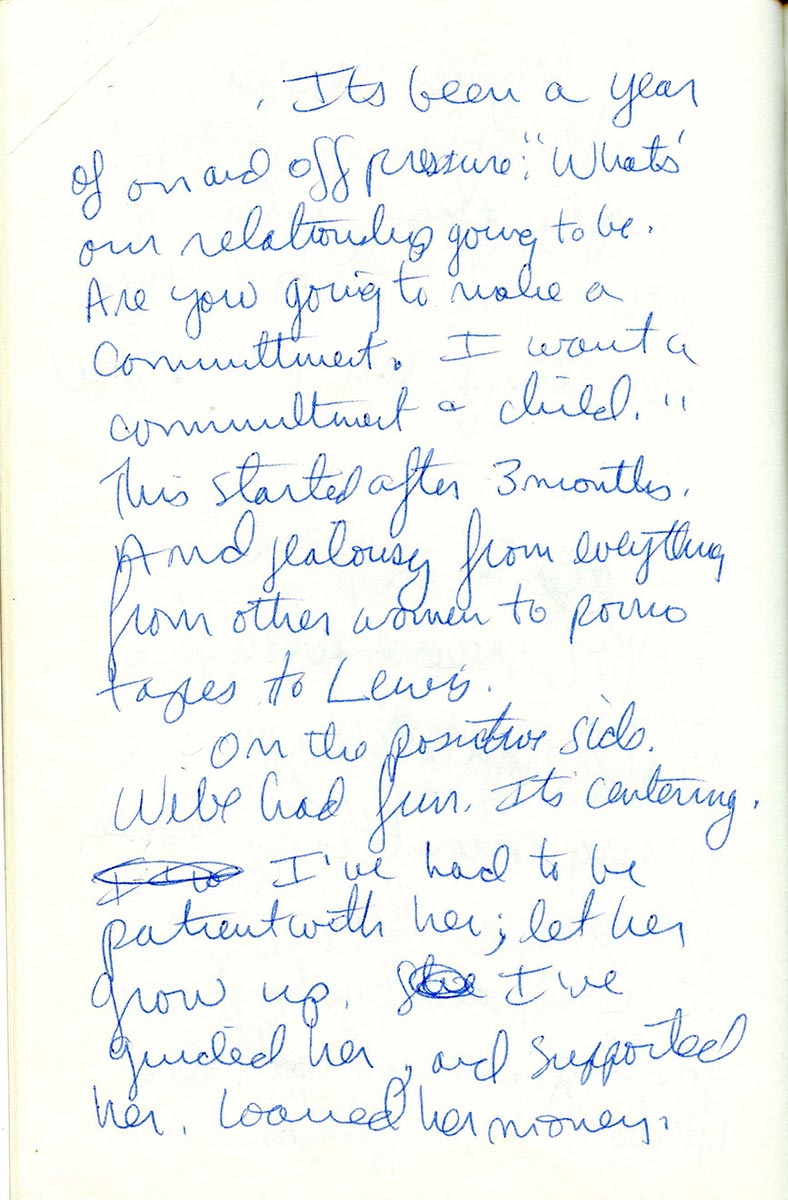 . Its been a year
of on and off pressure: "What's
our relationship going to be.
Are you going to make a
committment. I want a
committment & child."
This started after 3 months.
And jealousy from everything
from other women to porno
tapes to Lewis.
On the positive side.
We've had fun. Its centering.
I've had to be
patient with her; let her
grow up. She I've
guided her, and supported
her. Loaned her money.